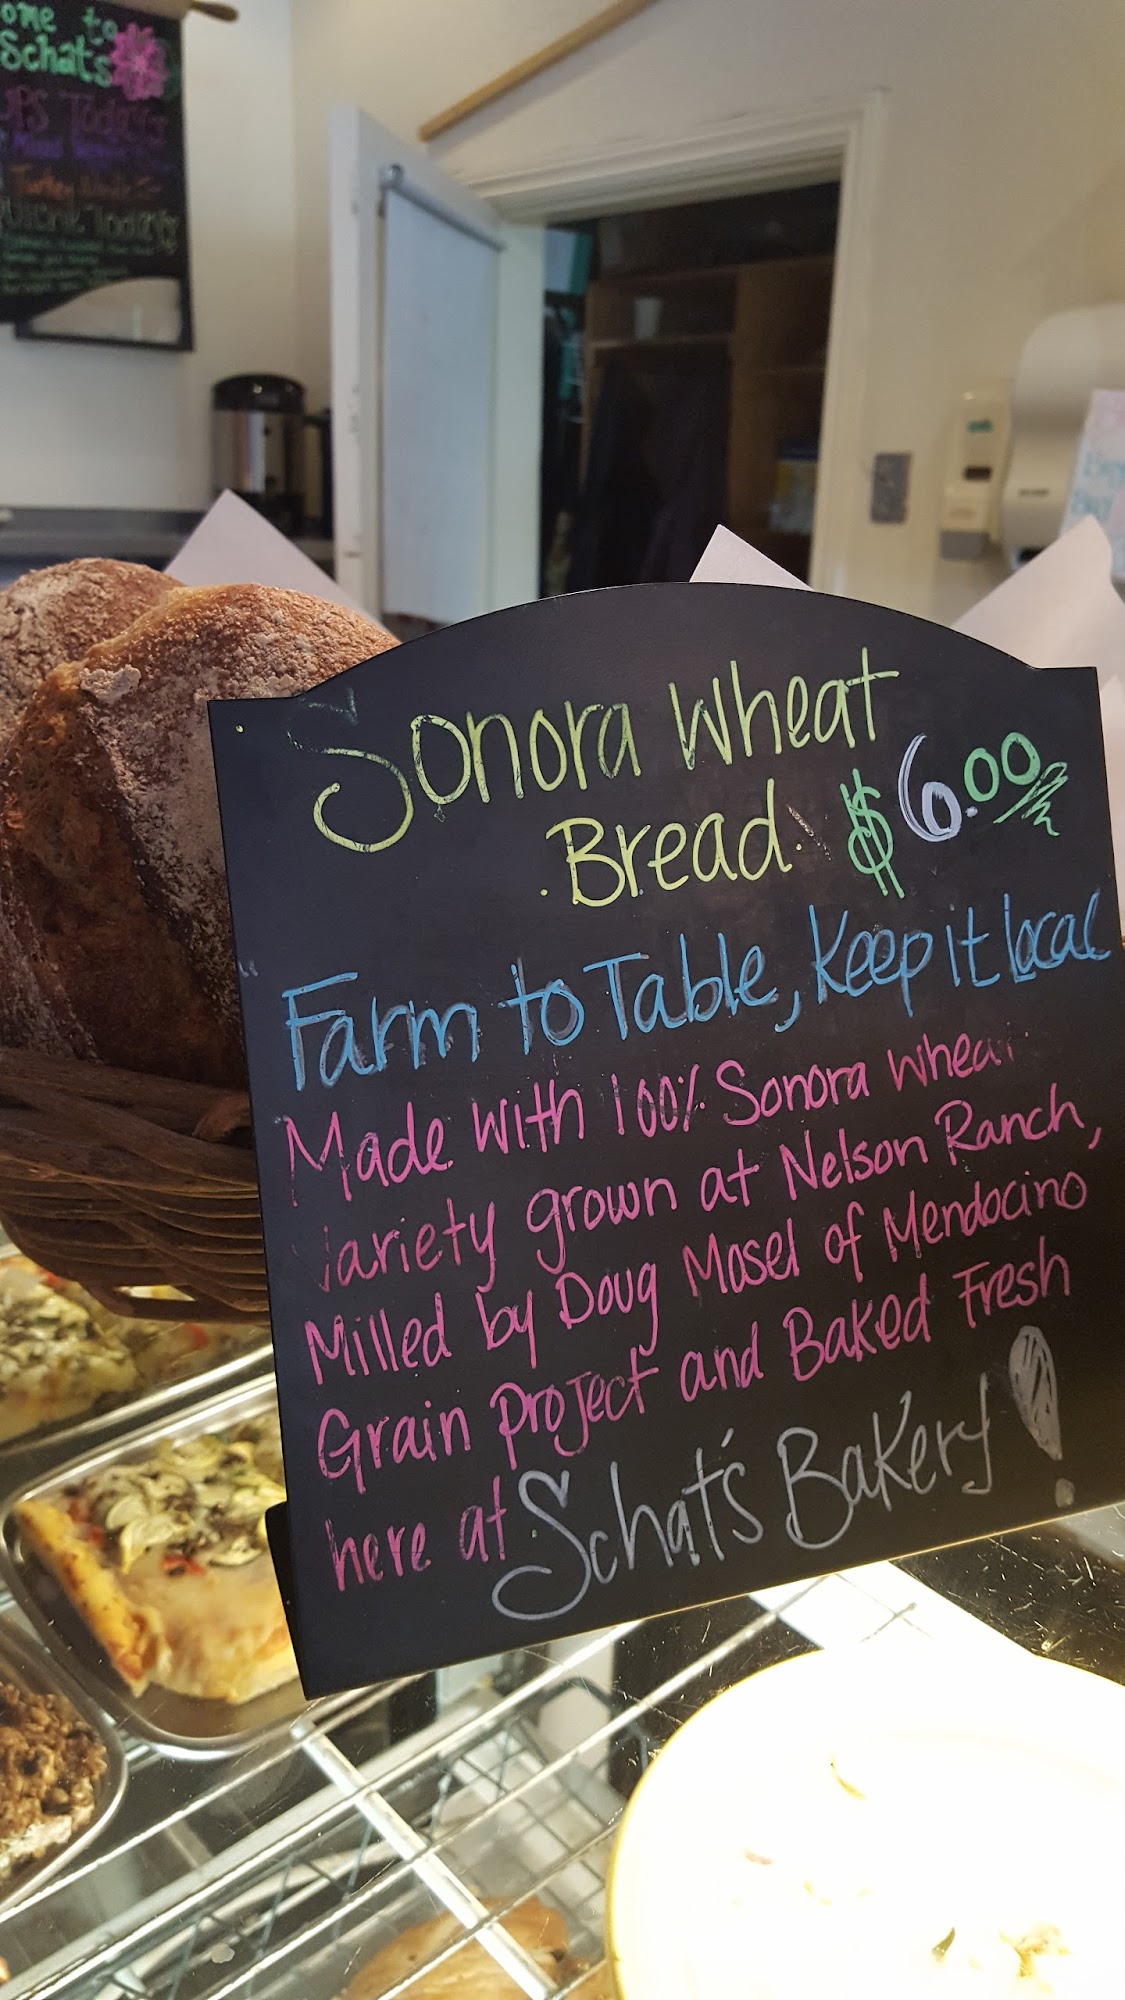 ome to
Schat's
Today
Turkey Noodle
Today
Sonora Wheat
Bread. $6.00
Farm to Table, Keep it local
Made with 100% Sonora Wheat
Variety grown at Nelson Ranch,
Milled by Doug Mosel of Mendocino
Grain Project and Baked Fresh
here at Schat's Bakery!